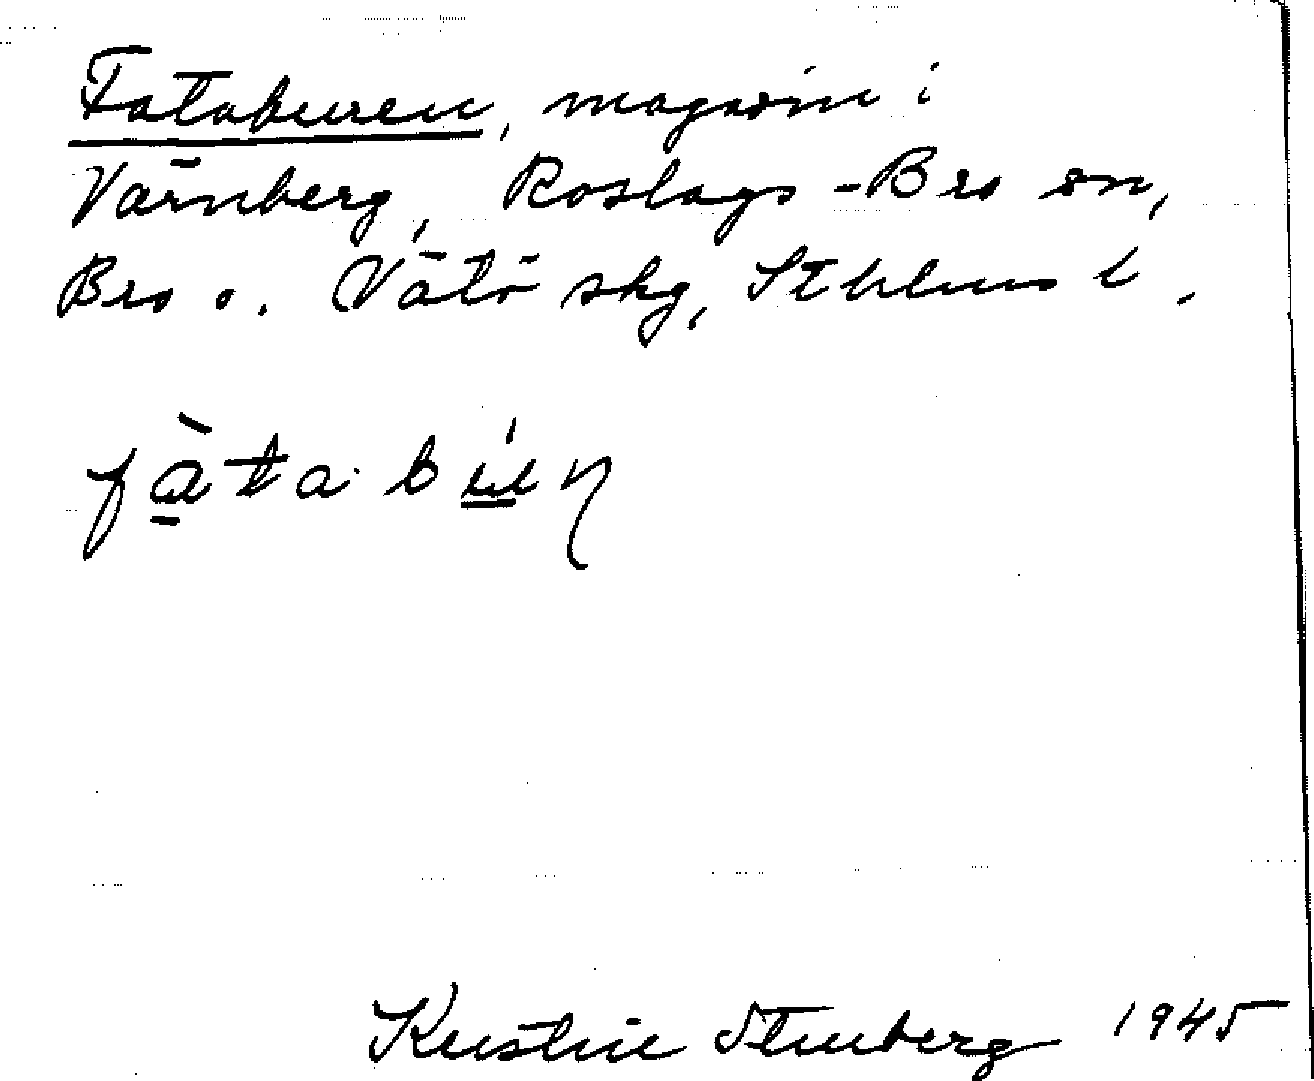 Fataburen, magasin i
Värnberg, Roslags-Bro sn,
Bro o. Vätö skg, Sthlms l.
fàtabúɳ
Kerstin Stenberg 1945